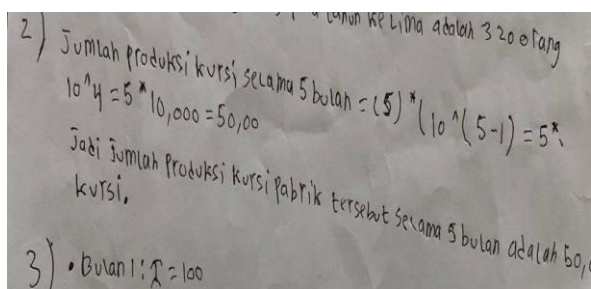 tahun ke lima adalah 320 orang
2) Jumlah produksi kursi selama 5 bulan = (5) * (10^(5-1) = 5*
10^4 = 5 * 10,000 = 50,00
Jadi Jumlah produksi kursi pabrik tersebut selama 5 bulan adalah 50,
kursi.
3) • Bulan 1 : I = 100